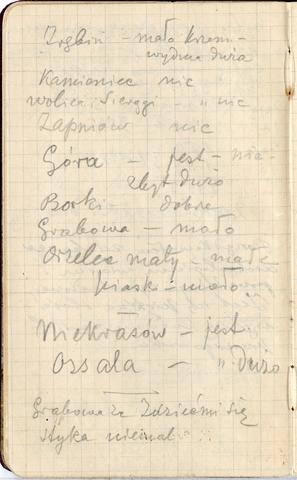 Zrębin – mało krzemi-
wydma duża
Kamieniec nic
wolica, Sieragi – " nic
Zapniów nic
Góra – jest – nie-
zbyt dużo
Borki – dobre
Grabowa – mało
Orzelec mały – małe
piaski – mało
Niekrasów – jest
Ossala – " Dużo
Grabowa ze Zdziećmi się
styka niemal